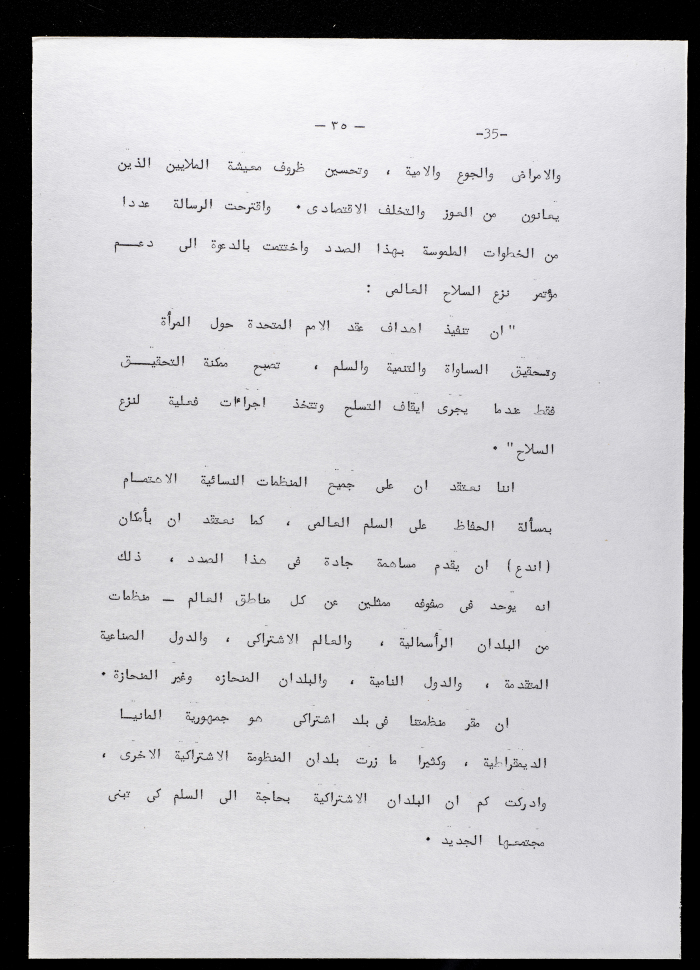 - ٣٥ -
-35-
والامراض والجوع والامية ، وتحسين ظروف معيشة الملايين الذين
يعانون من العوز والتخلف الاقتصادى . واقترحت الرسالة عددا
من الخطوات الملموسة بهذا الصدد واختتمت بالدعوة الى دعم
مؤتمر نزع السلاح العالمى :
"ان تنفيذ اهداف عقد الامم المتحدة حول المرأة
وتحقيق المساواة والتنمية والسلم ، تصبح ممكنة التحقيق
فقط عندما يجرى ايقاف التسلح وتتخذ اجراءات فعلية لنزع
السلاح" .
اننا نعتقد ان على جميع المنظمات النسائية الاهتمام
بمسألة الحفاظ على السلم العالمى ، كما نعتقد ان بأمكان
(اندع) ان يقدم مساهمة جادة فى هذا الصدد ، ذلك
انه يوحد فى صفوفه ممثلين عن كل مناطق العالم - منظمات
من البلدان الرأسمالية ، والعالم الاشتراكى ، والدول الصناعية
المتقدمة ، والدول النامية ، والبلدان المنحازه وغير المنحازة .
ان مقر منظمتنا فى بلد اشتراكى هو جمهورية المانيا
الديمقراطية ، وكثيرا ما زرت بلدان المنظومة الاشتراكية الاخرى ،
وادركت كم ان البلدان الاشتراكية بحاجة الى السلم كى تبنى
مجتمعها الجديد .